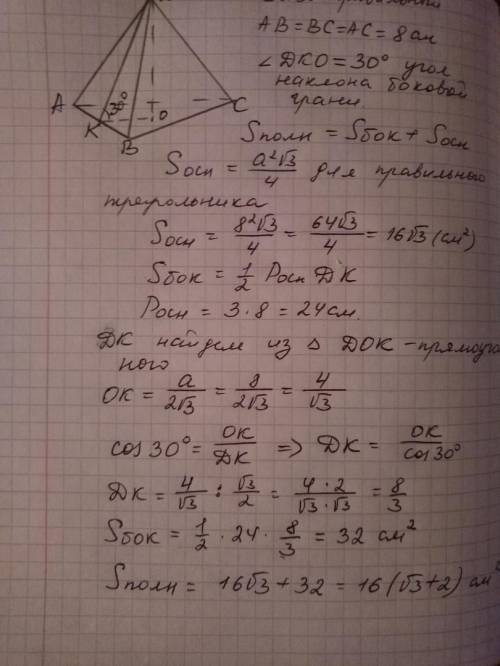 АВ=ВС=АС=8см
∠ДКО=30° угол
наклона боковой
грани.
А
30°
К
О
В
С
Sполн = Sбок + Sосн
Sосн = a²√3/4 для правильного
треугольника
Sосн = 8²√3/4 = 64√3/4 = 16√3 (см²)
Sбок = 1/2 Росн ДК
Росн = 3·8 = 24см.
ДК найдем из △ ДОК – прямоуголь
ного
ОК = a/2√3 = 8/2√3 = 4/√3
cos 30° = ОК/ДК => ДК = ОК/cos30°
ДК = 4/√3 : √3/2 = 4·2/√3·√3 = 8/3
Sбок = 1/2 · 24 · 8/3 = 32 см²
Sполн = 16√3 + 32 = 16(√3+2) см²